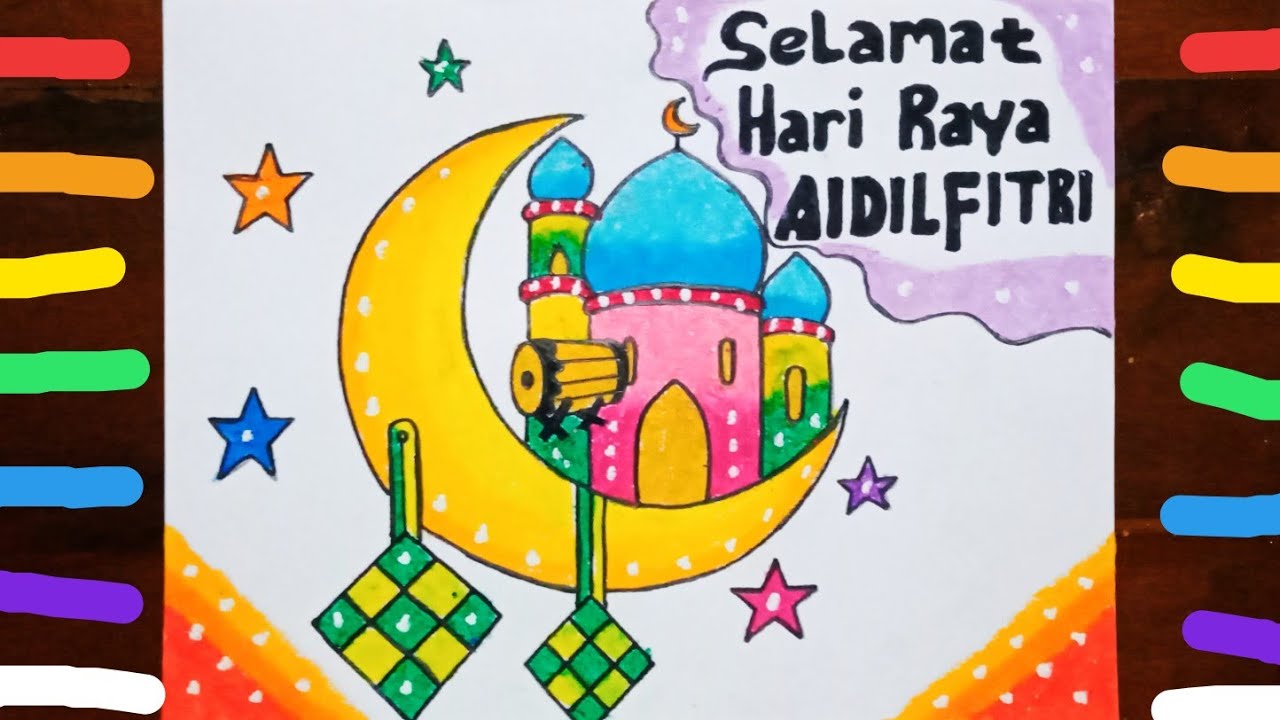 SeLamat
Hari Raya
AIDILFITRI